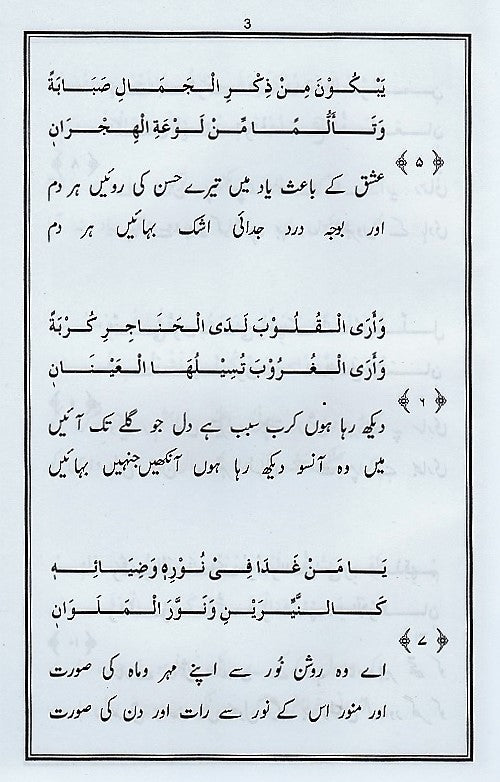 3
یَبْکُوْنَ مِنْ ذِکْرِ الْجَمَالِ صَبَابَةً
وَتَأَلُّمًا مِّنْ لَوْعَةِ الْهِجْرَانِ
﴿۵﴾
عشق کے باعث یاد میں تیرے حسن کی روئیں ہر دم
اور بوجہ درد جدائی اشک بہائیں ہر دم
وَأَرَی الْقُلُوْبَ لَدَی الْحَنَاجِرِ کُرْبَةً
وَأَرَی الْغُرُوْبَ تُسِیْلُهَا الْعَیْنَانِ
﴿۶﴾
دیکھ رہا ہوں کرب سبب ہے دل جو گلے تک آئیں
میں وہ آنسو دیکھ رہا ہوں آنکھیں جنہیں بہائیں
یَا مَنْ غَدَا فِیْ نُوْرِهٖ وَضِیَائِهٖ
کَالنَّیِّرَیْنِ وَنَوَّرَ الْمَلَوَانِ
﴿۷﴾
اے وہ روشن نُور سے اپنے مہر وماہ کی صورت
اور منور اس کے نور سے رات اور دن کی صورت